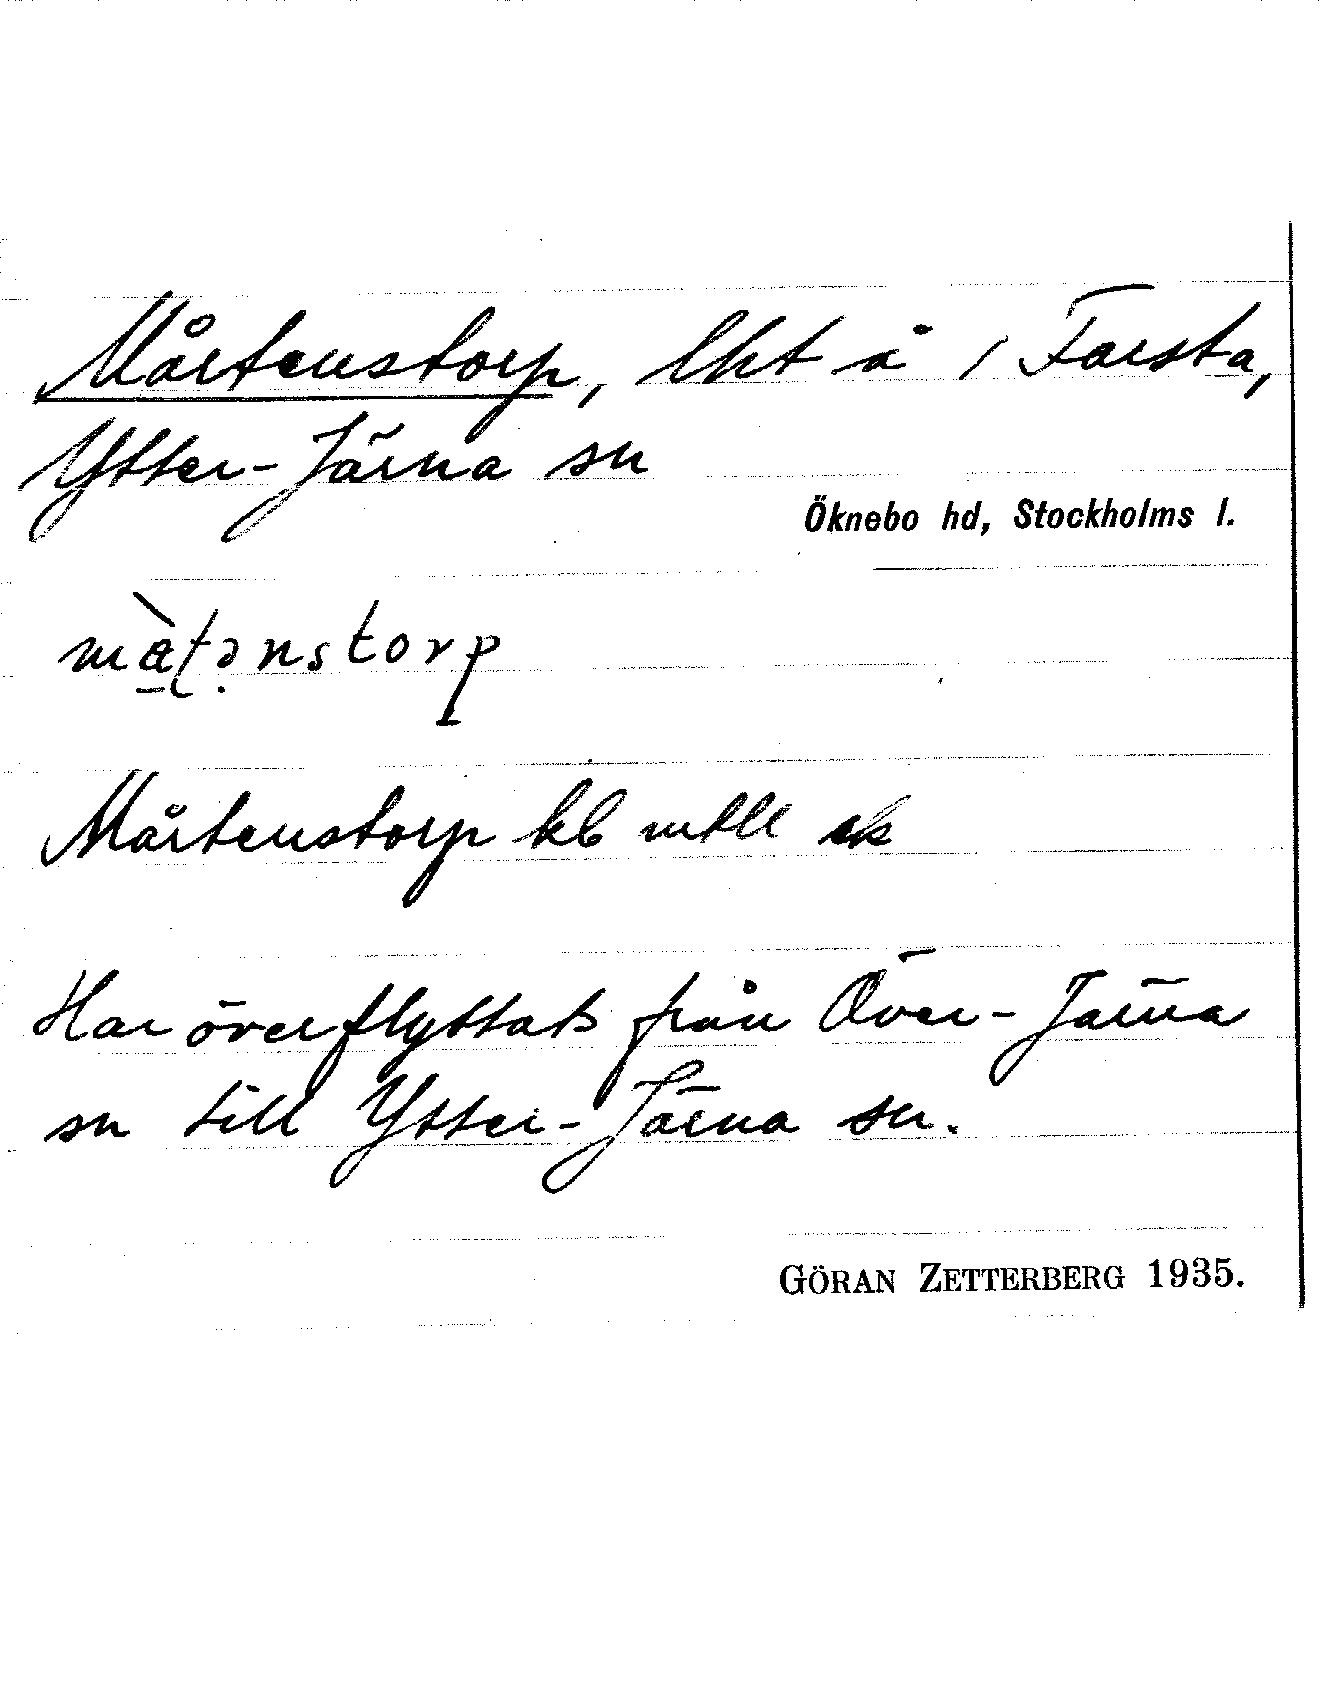 Mårtenstorp, lht å / Farsta,
Ytter-Järna sn
Öknebo hd, Stockholms l.
Mårtenstorp kb mtll
Har överflyttats från Över-Järna
sn till Ytter-Järna sn.
GÖRAN ZETTERBERG 1935.